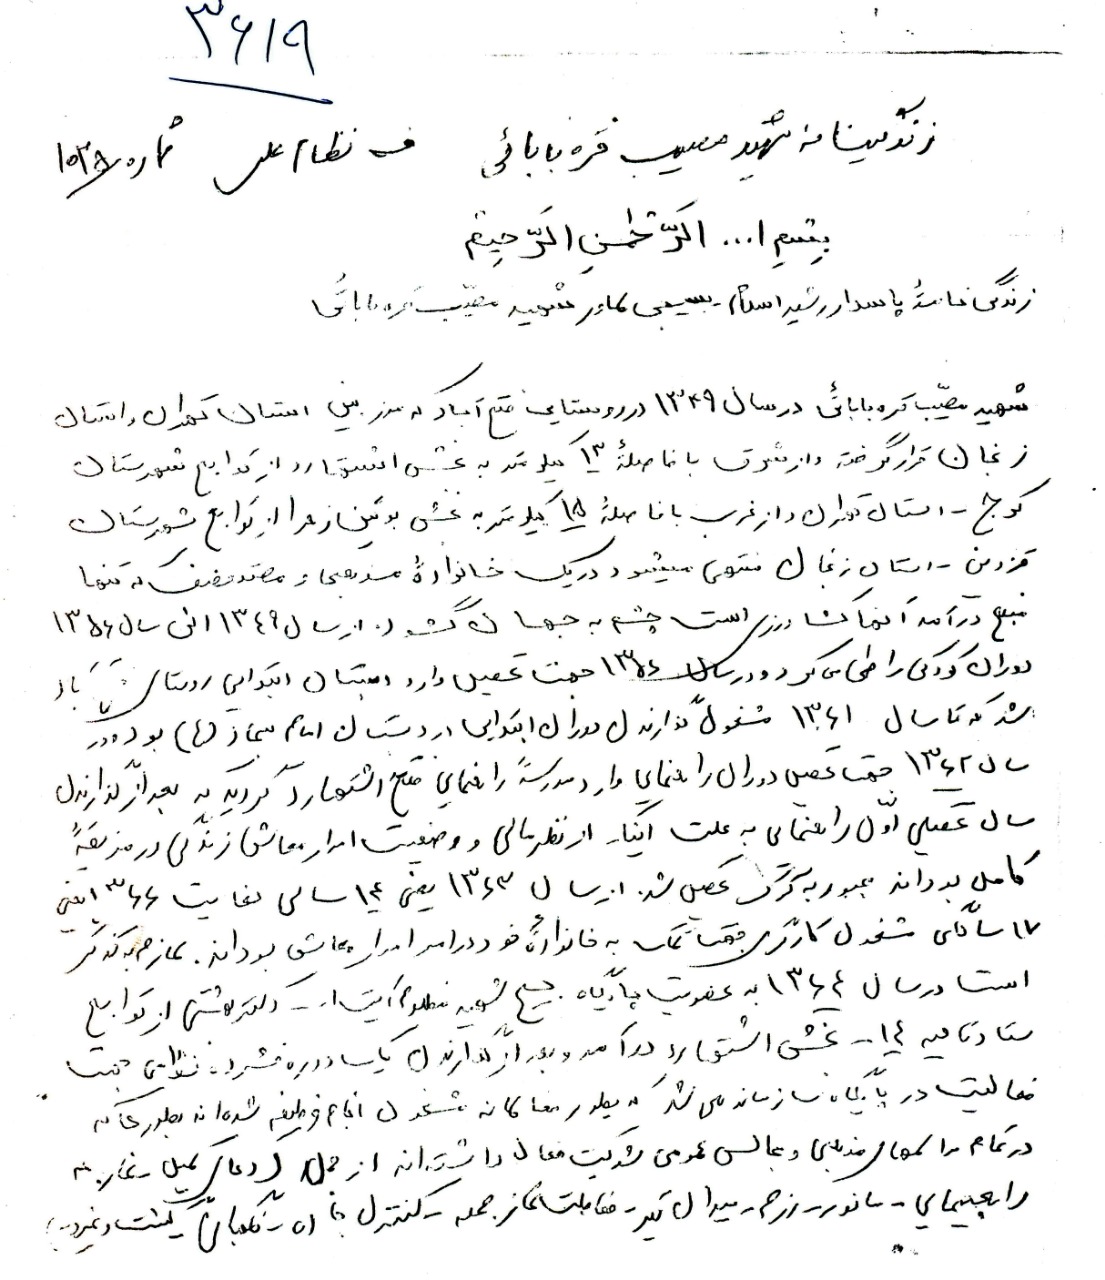 ۳۶۱۹
زندگینامه شهید مصیب قره بابائی فرزند نظامعلی شماره ۱۰۳۸
بِسمِ ا... الرَّحمنِ الرَّحیم
زندگی نامهٔ پاسدار رشید اسلام بسیجی دلاور شهید مصیّب قره بابائی
شهید مصیّب قره بابائی در سال ۱۳۴۹ در روستای فتح آباد که مرز بین استان تهران و استان
زنجان قرار گرفته و از شرق با فاصلهٔ ۱۳ کیلومتر به بخش اشتهارد از توابع شهرستان
کرج - استان تهران و از غرب با فاصلهٔ ۱۵ کیلومتر به بخش بوئین زهرا از توابع شهرستان
قزوین - استان زنجان منتهی میشود در یک خانوادهٔ مذهبی و مستضعف که تنها
منبع درآمد آنها کشاورزی است چشم به جهان گشود. از سال ۱۳۴۹ الی سال ۱۳۵۶
دوران کودکی را طی می کرد و در سال ۱۳۵۶ جهت تحصیل وارد دبستان ابتدایی روستای
شد که تا سال ۱۳۶۱ مشغول گذارندن دوران ابتدایی در دبستان امام سجاد (ع) بود و در
سال ۱۳۶۲ جهت تحصیل دوران راهنمایی وارد مدرسهٔ راهنمایی فتح اشتهارد گردید که بعد از گذارندن
سال تحصیلی اوّل راهنمائی به علت از نظر مالی و وضعیت امرار معاش زندگی در مضیقهٔ
کامل بوداند مجبور به ترک تحصیل شد. از سال ۱۳۶۳ یعنی ۱۴ سالگی لغایت ۱۳۶۶ یعنی
۱۷ سالگی مشغول کارگری جهت کمک به خانوادهٔ خود در امر امرار معاش بوداند. لازم به تذکر
است در سال ۱۳۶۴ به عضویت پایگاه بسیج شهید مظلوم آیت ا... دکتر بهشتی از توابع
ستاد ناحیه ۱۴ - بخش اشتهارد درآمد و بعد از گذارندن یکسا دوره فشرده نظامی جهت
فعالیت در پایگاه سازماندهی شد که بطور فعالانه مشغول انجام وظیفه شده اند بطوریکه
در تمام مراسمهای مذهبی و مجالس عمومی شرکت فعال داشته اند از جمله دعای کمیل - نماز
راهپیمایی - مانور - رزم - میدان تیر - نماز جمعه - کنترل - نگهبانی گشت و غیره